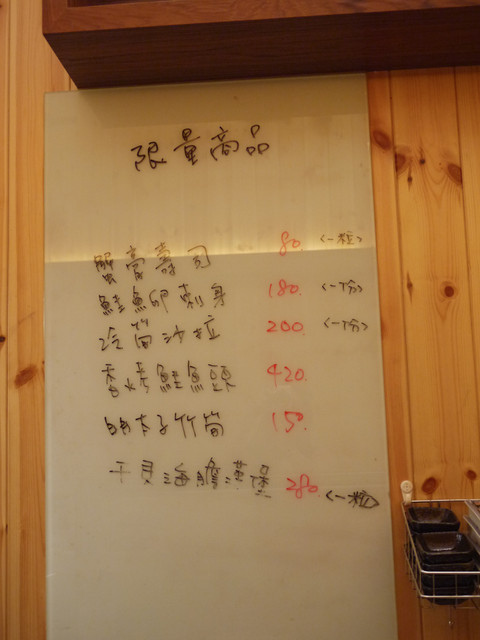 限量商品
蟹膏壽司 80. <一粒>
鮭魚卵刺身 180. <一份>
冷筍沙拉 200. <一份>
香烤鮭魚頭 420.
明太子竹筒 150.
干貝海膽漢堡 280. <一粒>